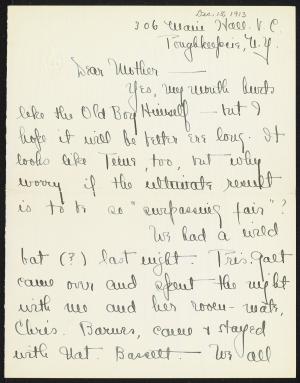 Dec. 18, 1913
306 Main Hall. V. C.
Poughkeepsie, N.Y.
Dear Mother —
Yes, my mouth hurts
like the Old Boy Himself — but I
hope it will be better ere long. It
looks like        , too, but why
worry if the ultimate result
is to be so "surpassing fair"?
We had a wild
bat (?) last night. Tris. Galt
came over and spent the night
with me and her room-mate,
Chris. Barnes, came & stayed
with Nat. Bassett — We all